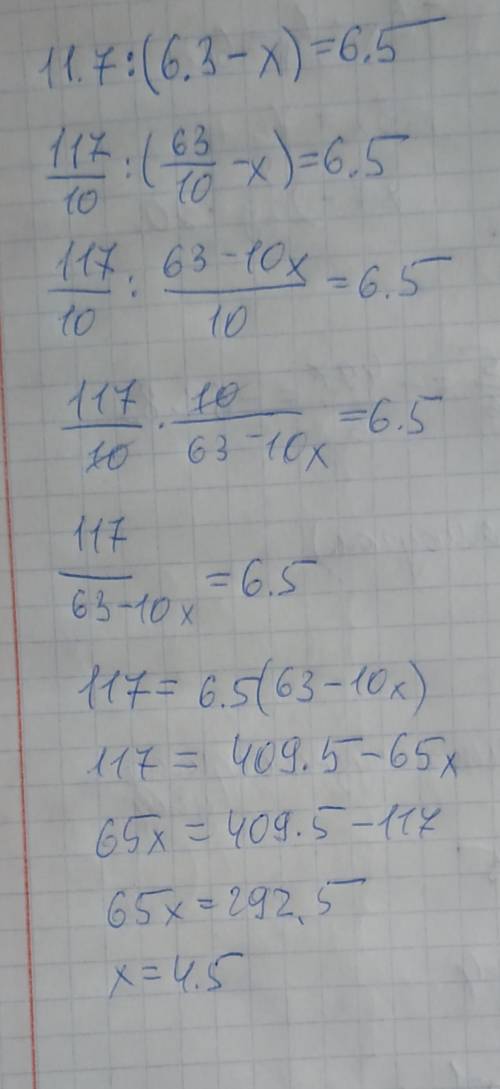 11.7:(6.3-x)=6.5
117/10:(63/10-x)=6.5
117/10:(63-10x)/10=6.5
117/10·10/(63-10x)=6.5
117/(63-10x)=6.5
117=6.5(63-10x)
117=409.5-65x
65x=409.5-117
65x=292.5
x=4.5